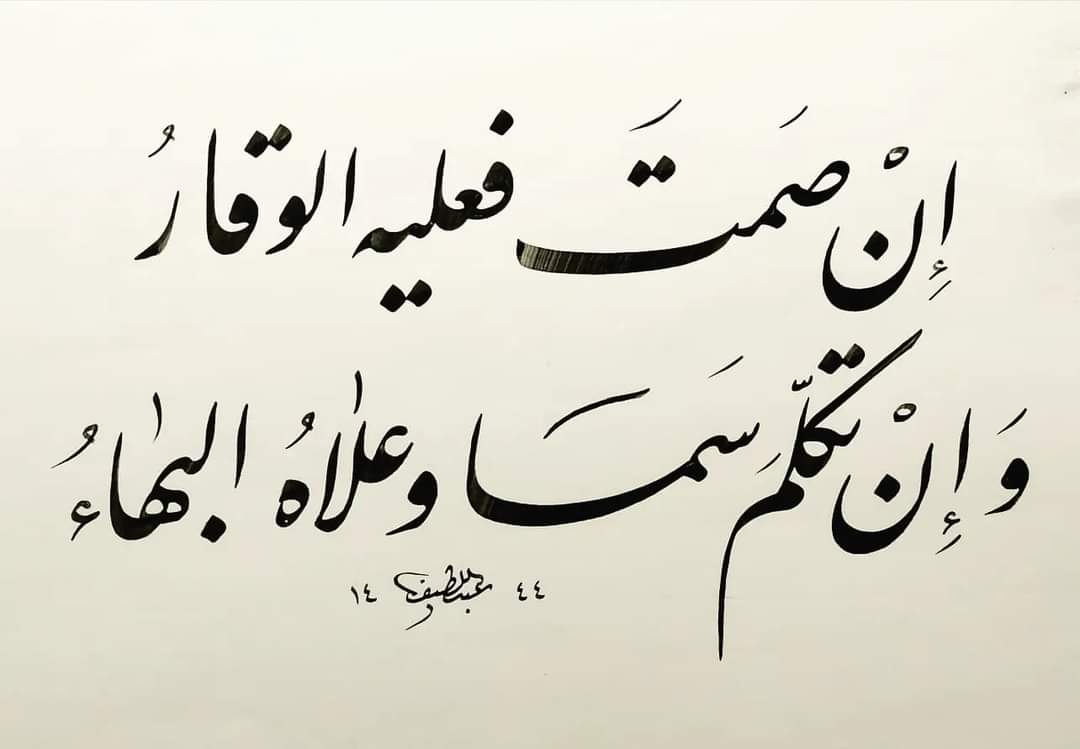 إِنْ صَمتَ فعليه الوقارُ
وَ إِنْ تكلّمَ سَمَا وعلاهُ البهاءُ
٤٤ عبداللطيف ١٤